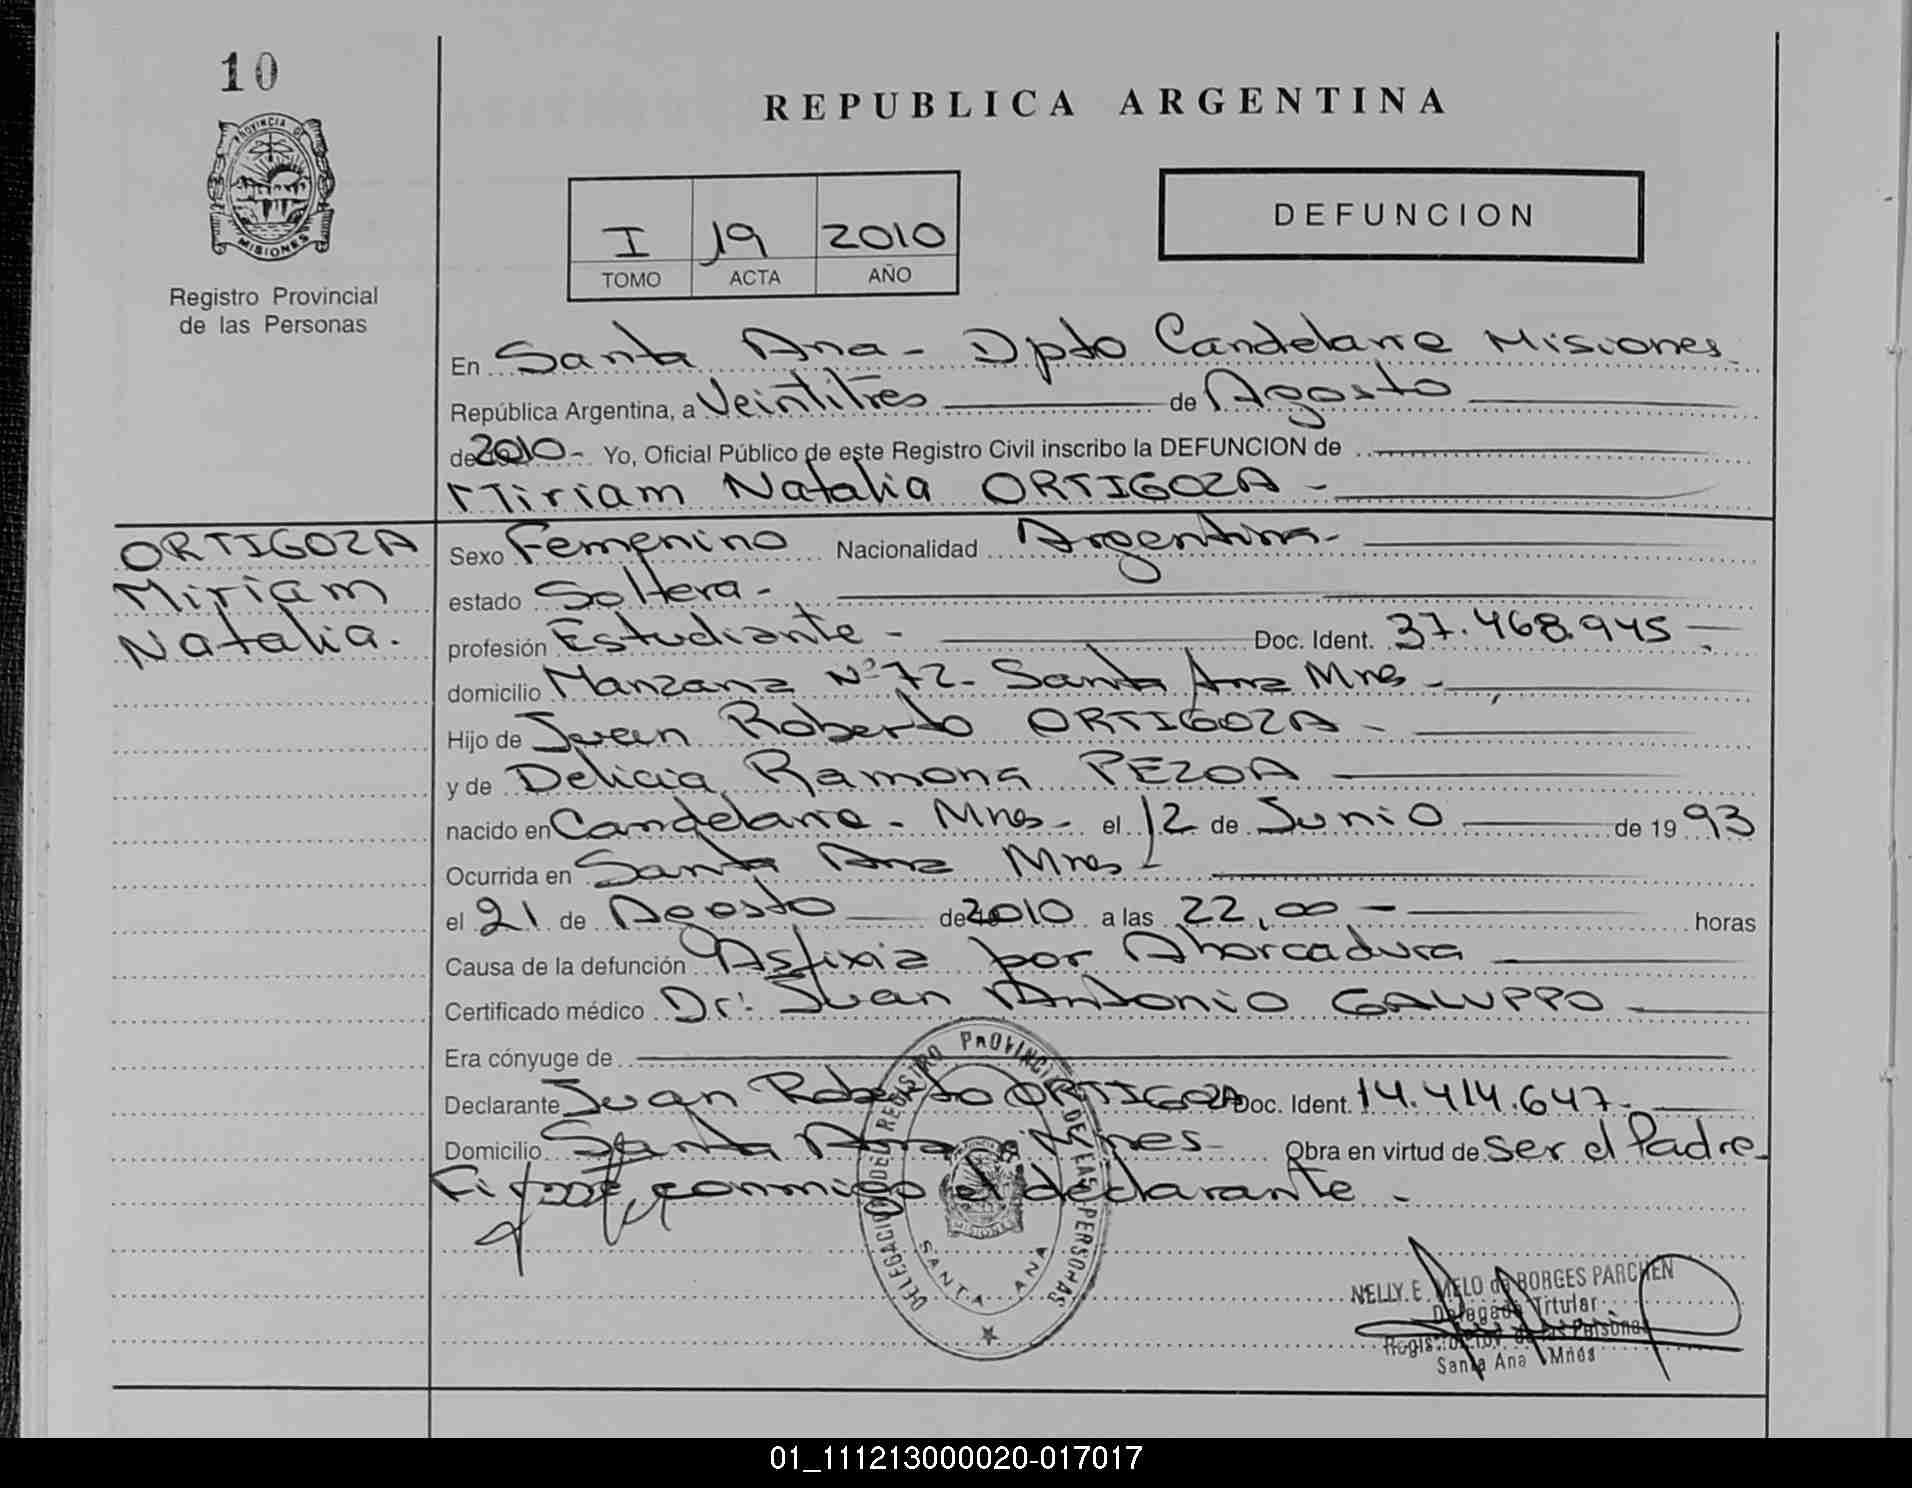 10
REPUBLICA ARGENTINA
PROVINCIA DE
MISIONES
Registro Provincial
de las Personas
I 19 2010
TOMO ACTA AÑO
DEFUNCION
En Santa Ana - Dpto Candelaria Misiones
República Argentina, a Veintitres de Agosto
de 2010- Yo, Oficial Público de este Registro Civil inscribo la DEFUNCION de
Miriam Natalia ORTIGOZA -
ORTIGOZA
Miriam
Natalia.
Sexo Femenino Nacionalidad Argentina-
estado Soltera-
profesión Estudiante - Doc. Ident. 37.468.945 -
domicilio Manzana Nº 72- Santa Ana Mnes-
Hijo de Juan Roberto ORTIGOZA -
y de Delicia Ramona PEZOA
nacido en Candelaria - Mnes- el 12 de Junio de 19 93
Ocurrida en Santa Ana Mnes-
el 21 de Agosto de 2010 a las 22,00 - horas
Causa de la defunción Asfixia por Ahorcadura
Certificado médico Dr: Juan Antonio GALUPPO
Era cónyuge de
Declarante Juan Roberto ORTIGOZA Doc. Ident. 14.414.647-
Domicilio Santa Ana Mnes- Obra en virtud de ser el Padre-
conmigo el declarante -
DELEGACION DEL REGISTRO PROVINCIAL DE LAS PERSONAS
SANTA ANA
NELLY E. MELO de BORGES PARCHEN
Delegada Titular
Regist. Prov. de las Personas
Santa Ana Mnes
01_111213000020-017017